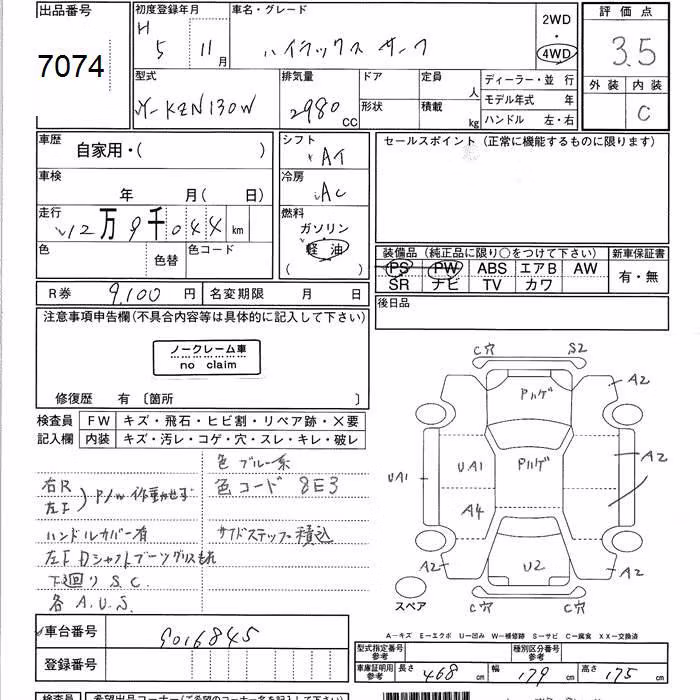 出品番号 初度登録年月 車名・グレード 2WD 評価点
7074 H 5 11月 ハイラックスサーフ ・4WD 3.5
型式 排気量 ドア 定員 人 ディーラー・並 行 外装 内装
Y-KZN130W 2980 CC 形状 積載 kg モデル年式 年 C
ハンドル 左・右
車歴 シフト セールスポイント (正常に機能するものに限ります)
自家用・( ) AT
車検 冷房
年 月( 日) AC
走行 燃料
12万9千044 km ガソリン
色 色替 色コード 軽油
( )
装備品 (純正品に限り○をつけて下さい) 新車保証書
PS PW ABS エアB AW 有・無
SR ナビ TV カワ
R券 9,100 円 名変期限 月 日 後日品
注意事項申告欄(不具合内容等は具体的に記入して下さい)
ノークレーム車
no claim
修復歴 有 〔箇所 〕
検査員 FW キズ・飛石・ヒビ割・リペア跡・×要
記入欄 内装 キズ・汚レ・コゲ・穴・スレ・キレ・破レ
色 ブルー系
色コード 8E3
右R
左F ) P/W 作動せず
ハンドルカバー有 サイドステップ積込
左F Dシャフトブーツグリスもれ
下廻り S.C.
各 A.U.S.
C穴 S2
Pハゲ A2
UA1 UA1 Pハゲ A2
A4
A2 U2 A2
スペア C穴 C穴
A－キズ E－エクボ U－凹み W－補修跡 S－サビ C－腐食 XX－交換済
車台番号 9016845
登録番号
型式指定番号 参考 種別区分番号 参考
車庫証明用 参考 長さ 468 cm 幅 179 cm 高さ 175 cm
検査員 希望出品コーナー(ご希望のコーナー名を記入下さい)